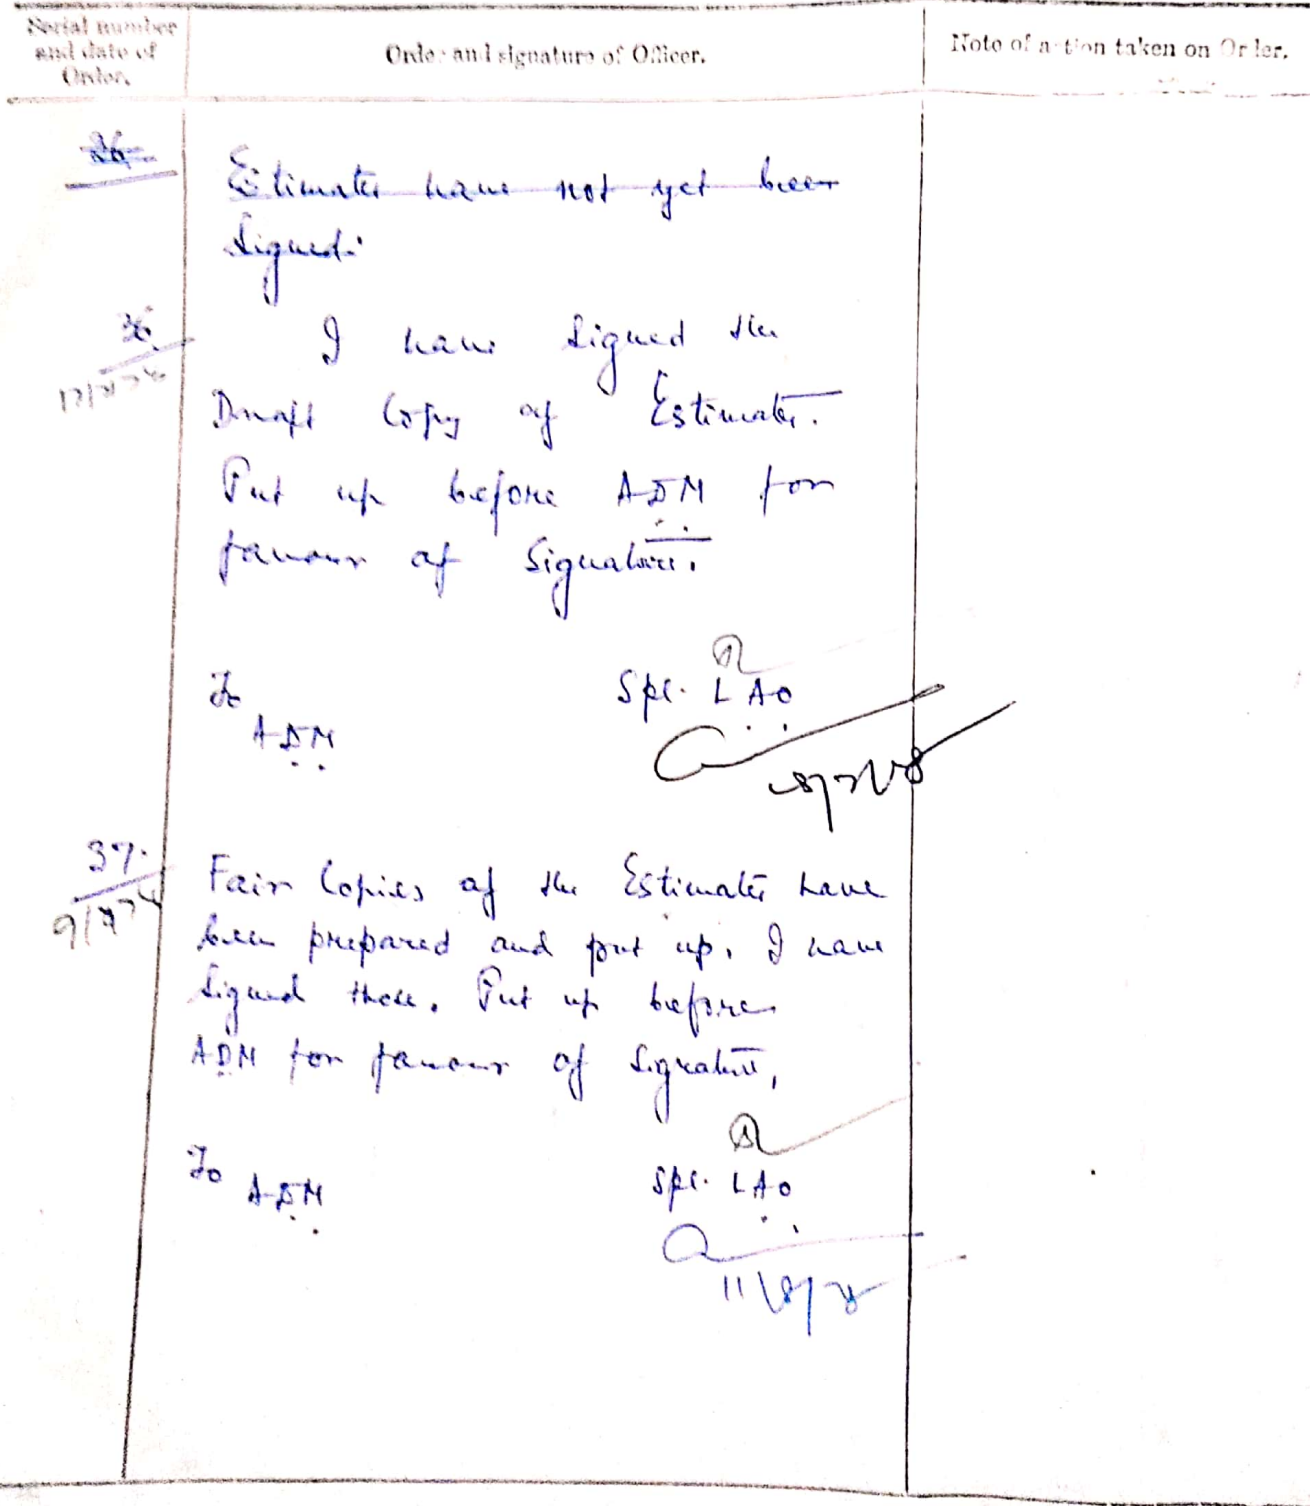 Serial number
and date of
Order.
Order and signature of Officer.
Note of action taken on Order.
Estimates have not yet been
signed.
36
I have signed the
Draft Copy of Estimates.
Put up before ADM for
favour of Signature.
Spl. LAO
To
ADM
37.
Fair Copies of the Estimates have
been prepared and put up. I have
signed these. Put up before
ADM for favour of signature,
To
ADM
Spl. LAO